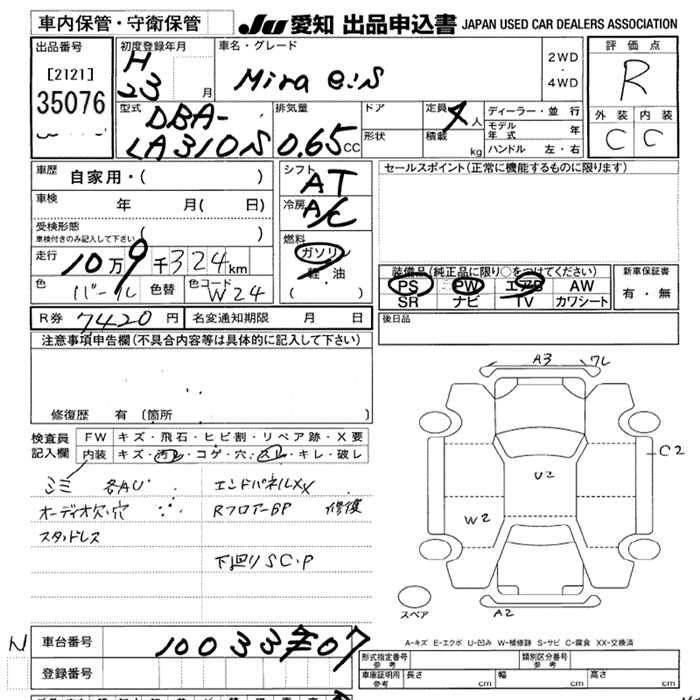 車内保管・守衛保管 JU 愛知 出品申込書 JAPAN USED CAR DEALERS ASSOCIATION
出品番号 [2121] 35076
初度登録年月 H 23 月
車名・グレード Mira e:S
2WD ・ 4WD
評価点 R
外装 C 内装 C
型式 DBA-LA310S
排気量 0.65 CC
ドア 形状
定員 4人 積載 kg
ディーラー・並行
モデル年式 年
ハンドル 左・右
車歴 自家用・( )
車検 年 月( 日)
受検形態 車検付きのみ記入して下さい ( )
走行 10万9千324km
色 パール 色替 色コード W24
シフト AT
冷房 A/C
燃料 ガソリン 軽油 ・ ( )
セールスポイント(正常に機能するものに限ります)
装備品(純正品に限り○をつけてください)
PS PW エアB AW
SR ナビ TV カワシート
新車保証書 有・無
R券 7420円 名変通知期限 月 日
後日品
注意事項申告欄(不具合内容等は具体的に記入して下さい)
修復歴 有(箇所 )
検査員記入欄
FW キズ・飛石・ヒビ割・リペア跡・X要
内装 キズ・汚レ・コゲ・穴・スレ・キレ・破レ
シミ 各AU エンドパネルXX
オーディオ欠・穴 RフロアーBP 修復
スタッドレス
下廻りSC・P
A3 ワレ
C2
U2
W2
A2
スペア
A-キズ E-エクボ U-凹み W-補修跡 S-サビ C-腐食 XX-交換済
N 車台番号 1003307
登録番号
形式指定番号 参考 類別区分番号 参考
車庫証明用 参考 長さ cm 幅 cm 高さ cm